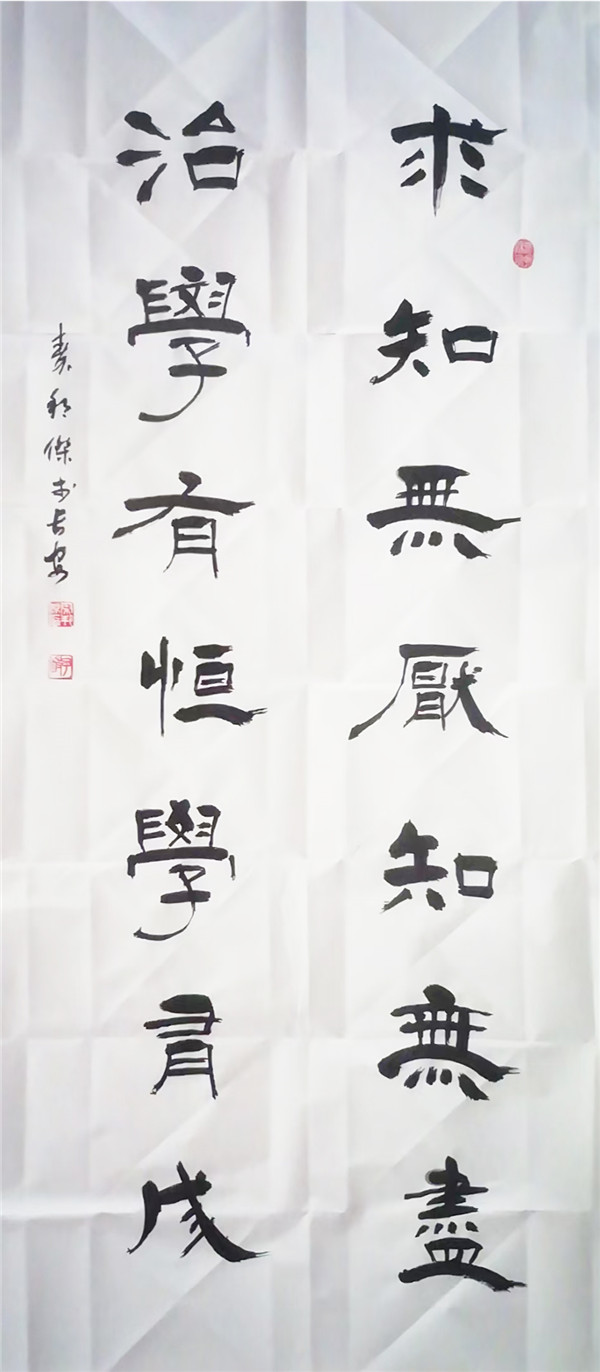 求知無厭知無盡
治學有恒學有成
傑书长安